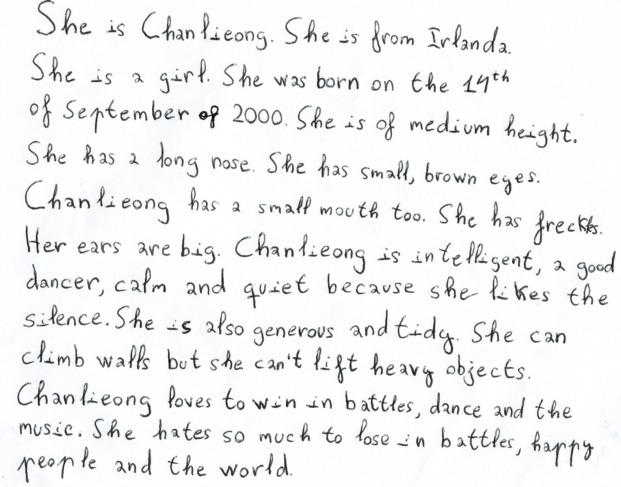 She is Chanlieong. She is from Irlanda.
She is a girl. She was born on the 14th
of September of 2000. She is of medium height.
She has a long nose. She has small, brown eyes.
Chanlieong has a small mouth too. She has freckles.
Her ears are big. Chanlieong is intelligent, a good
dancer, calm and quiet because she likes the
silence. She is also generous and tidy. She can
climb walls but she can't lift heavy objects.
Chanlieong loves to win in battles, dance and the
music. She hates so much to lose in battles, happy
people and the world.